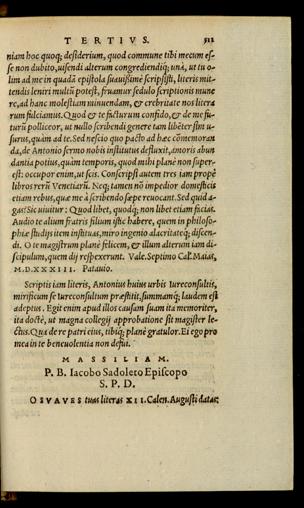 TERTIVS. 511
niam hoc quoq; desiderium, quod commune tibi mecum es-
se non dubito, uisendi alterum congrediendiq; unà, ut tu o-
lim ad me in quadā epistola suauissimè scripsisti, literis mit-
tendis leniri multũ potest, fruamur sedulo scriptionis mune
re, ad hanc molestiam minuendam, & crebritate nos litera
rum fulciamus. Quod & te facturum confido, & de me fu-
turũ polliceor, ut nullo scribendi genere tam libẽter sim u-
surus, quàm ad te. Sed nescio quo pacto ad hæc cōmemoran
da, de Antonio sermo nobis institutus defluxit, amoris abun
dantia potius, quàm temporis, quod mihi planè non super-
est: occupor enim, ut scis. Conscripsi autem tres iam propè
libros rerũ Venetiarũ. Neq; tamen nō impedior domesticis
etiam rebus, quæ me à scribendo sæpe reuocant. Sed quid a-
gas? Sic uiuitur: Quod libet, quodq; non libet etiam facias.
Audio te alium fratris filium istic habere, quem in philoso-
phiæ studijs item instituas, miro ingenio alacritateq; discen-
di. O te magistrum planè felicem, & illum alterum iam di-
scipulum, quem dij respexerunt. Vale. Septimo Cal. Maias,
M.D.XXXIII. Patauio.
Scriptis iam literis, Antonius huius urbis Iureconsultis,
mirificum se Iureconsultum præstitit, summamq; laudem est
adeptus. Egit enim apud illos causam suam ita memoriter,
ita doctè, ut magna collegij approbatione sit magister le-
ctus. Qua de re patri eius, tibiq; planè gratulor. Ei ego pro
mea in te beneuolentia non defui.
MASSILIAM.
P. B. Iacobo Sadoleto Episcopo
S. P. D.
O SVAVES tuas literas XII. Calen. Augusti datas: